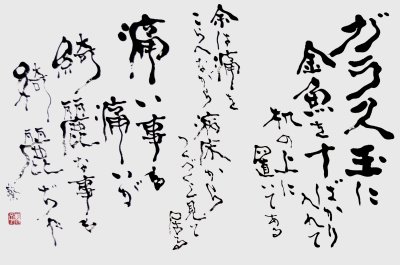 ガラス玉に
金魚を十ばかり入れて
机の上に置いてある
余は痛を
こらへながら病床から
つくづくと見て居る
痛い事も
痛いが
綺麗な事も
綺麗ぢや